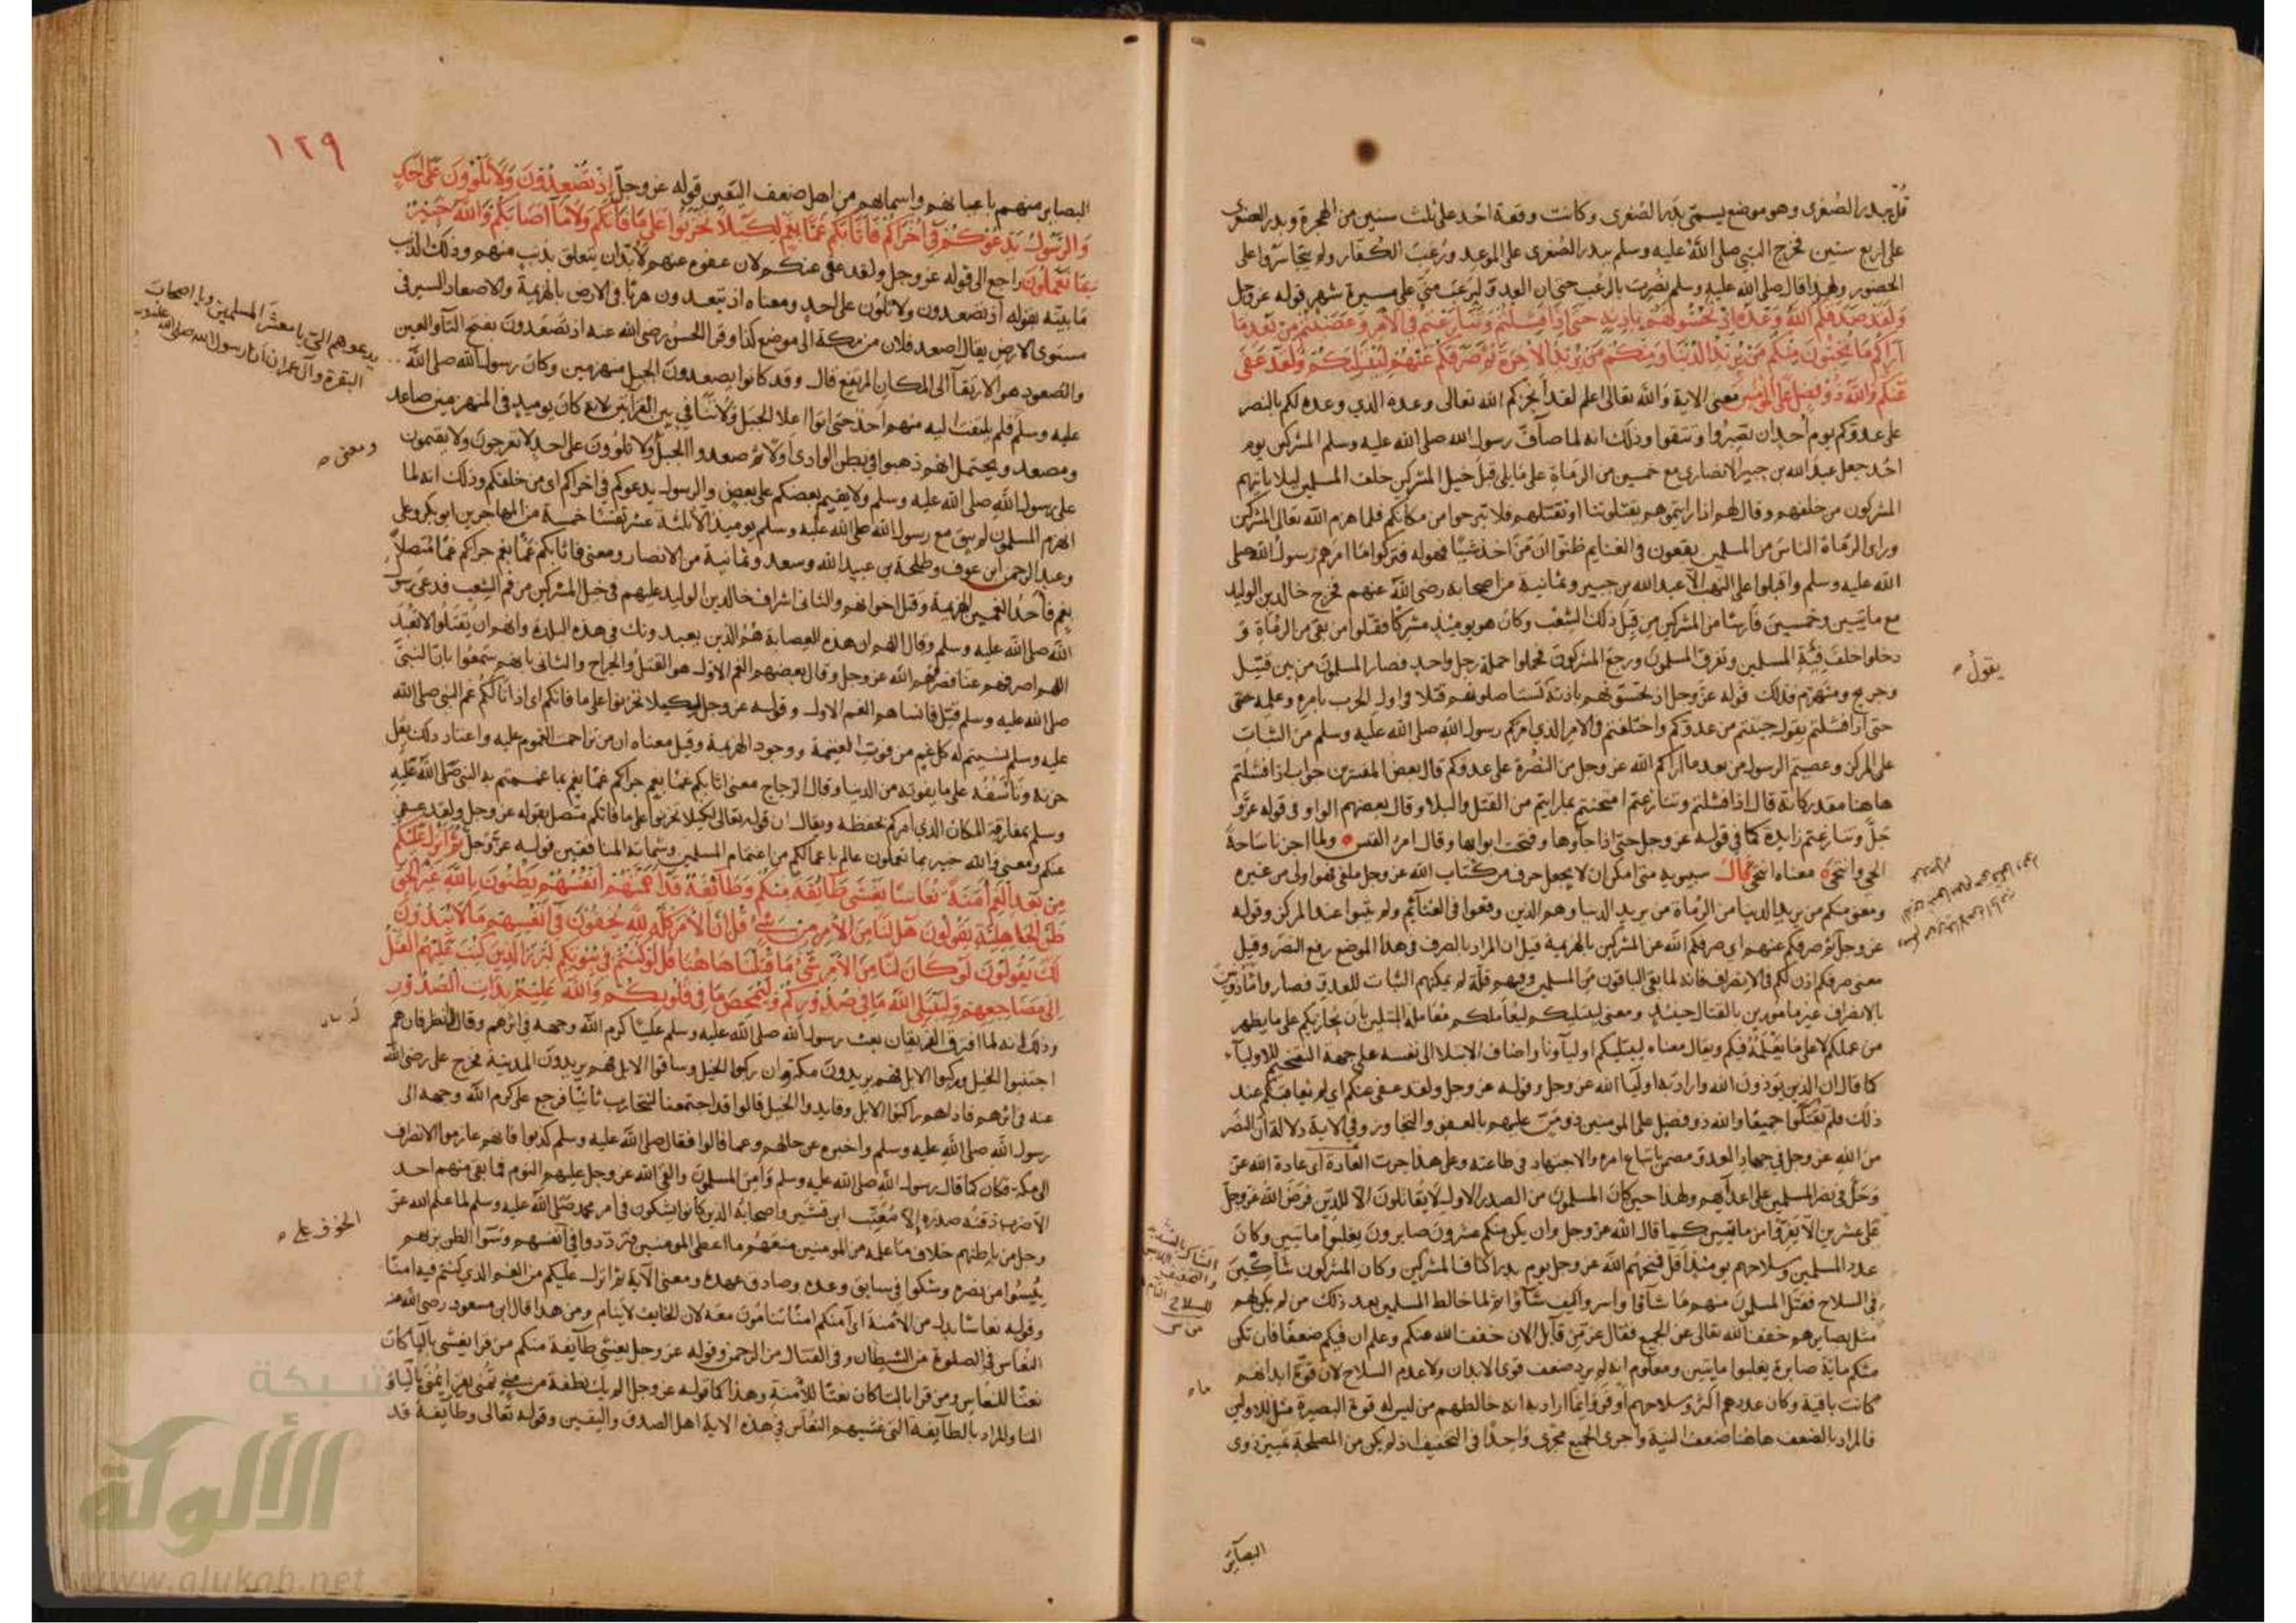 قبل بدر الصغرى وهو موضع يسمّى بدر الصغرى وكانت وقعة احد على ثلث سنين من الهجرة وبدر الصغرى
على اربع سنين فخرج النبي صلى الله عليه وسلم ببدر الصغرى على الموعد ورعب الكفار ولم يتجاسروا على
الحضور ولهذا قال صلى الله عليه وسلم نصرت بالرعب حتى ان العدو ليرعب مني على مسيرة شهر قوله عز وجل
وَلَقَدْ صَدَقَكُمُ اللَّهُ وَعْدَهُ إِذْ تَحُسُّونَهُمْ بِإِذْنِهِ حَتَّى إِذَا فَشِلْتُمْ وَتَنَازَعْتُمْ فِي الْأَمْرِ وَعَصَيْتُمْ مِنْ بَعْدِ مَا
أَرَاكُمْ مَا تُحِبُّونَ مِنْكُمْ مَنْ يُرِيدُ الدُّنْيَا وَمِنْكُمْ مَنْ يُرِيدُ الْآخِرَةَ ثُمَّ صَرَفَكُمْ عَنْهُمْ لِيَبْتَلِيَكُمْ وَلَقَدْ عَفَى
عَنْكُمْ وَاللَّهُ ذُو فَضْلٍ عَلَى الْمُؤْمِنِينَ معنى الاية والله تعالى اعلم لقد انجزكم الله تعالى وعده الذي وعده لكم بالنصر
على عدوكم يوم أحد ان تصبروا وتتقوا وذلك انه لما صافّ رسول الله صلى الله عليه وسلم المشركين يوم
احُد جعل عبد الله بن جبير الانصاري مع خمسين من الرماة على مايلى قبل خيل المشركين خلف المسلمين ليلا ياتيهم
المشركون من خلفهم وقال لهم اذا رايتموهم يقتلوننا او نقتلهم فلا تبرحوا من مكانكم فلما هزم الله تعالى المشركين
وراى الرماة الناس من المسلمين يقعون في الغنايم ظنوا ان من اخذ شيئا فهو له فتركوا ما امرهم رسول الله صلى
الله عليه وسلم واقبلوا على النهب الّا عبد الله بن جبير وثمانية من اصحابه رضى الله عنهم فخرج خالد بن الوليد
مع مايتين وخمسين فارسًا من المشركين من قبل ذلك الشعب وكان هو يومئذ مشركًا فقتلوا من بقى من الرماة و
دخلوا خلف فية المسلمين وتفرق المسلمون ورجع المشركون فحملوا حملة رجل واحد فصار المسلمون من بين قتيل
وجريح ومنهزم فذلك قوله عز وجل اذ تحسّونهم باذنه تستاصلونهم قتلا في اول الحرب بامره وعلمه حتى
يقول ص
حتى اذا فشلتم يقول جبنتم من عدوكم واختلفتم في الامر الذي امركم رسول الله صلى الله عليه وسلم من الثبات
على المركز وعصيتم الرسول من بعد ما اراكم الله عز وجل من النصرة على عدوكم قال بعض المفسرين جواب اذا فشلتم
هاهنا مقدر كانه قال اذا فشلتم وتنازعتم امتحنتم بما رايتم من القتل والبلا وقال بعضهم الواو في قوله عزّ و
جلّ وتنازعتم زايدة كما في قوله عز وجل حتى اذا جآوها وفتحت ابوابها وقال امرؤ القيس ولما اجزنا ساحة
الحي وانتحى معناه انتحى قال سيبويه متى امكن ان لا يجعل حرف من كتاب الله عز وجل ملغى فهو اولى من غيره
ومعنى منكم من يريد الدنيا من الرماة من يريد الدنيا وهم الذين وقعوا في الغنائم ولم يثبتوا عند المركز وقوله
عز وجل ثم صرفكم عنهم اى صرفكم الله عن المشركين بالهزيمة قيل ان المراد بالصرف في هذا الموضع رفع النصر وقيل
معنى صرفكم اذن لكم في الانصراف فانه لما بقى الباقون من المسلمين وفيهم قلة لم يمكنهم الثبات للعدو فصاروا مأذونين
بالانصراف غير مامورين بالقتال حينئذ ومعنى ليبتليكم ليعاملكم معاملة المبتلين بان يجازيكم على ما يظهر
من عملكم لا على ما يعلمه فيكم ويقال معناه ليبتليكم اوليآونا واضاف الابتلا الى نفسه على جهة التفخيم للاوليآء
كما قال ان الذين يؤذون الله واراد به اوليآ الله عز وجل وقوله عز وجل ولقد عفى عنكم اى لم يعاقبكم عند
ذلك فلم تقتلوا جميعًا والله ذو فضل على المومنين ذو منّ عليهم بالعفو والتجاوز وفي الاية دلالة ان النصر
من الله عز وجل في جهاد العدو مضمن باتباع امره والاجتهاد في طاعته وعلى هذا جرت العادة اى عادة الله عز
وجلّ في نصر المسلمين على اعدآئهم ولهذا حين كان المسلمون من الصدر الاول لا يقاتلون الّا للدين فرض الله عز وجل
على عشرين الّا يفروا من مايتين كما قال الله عز وجل وان يكن منكم عشرون صابرون يغلبوا مايتين وكان
عدد المسلمين وسلاحهم يومئذ اقل فنحهم الله عز وجل يوم بدر اكتاف المشركين وكان المشركون شآكّين
في السلاح فقتل المسلمون منهم ما شآوا واسروا كيف شآوا ثم لما خالط المسلمين بعد ذلك من لم يكن لهم
مثل بصايرهم خفف الله تعالى عن الجميع فقال عز من قآيل الان خفف الله عنكم وعلم ان فيكم ضعفًا فان تكن
منكم ماية صابرة يغلبوا مايتين ومعلوم انه لم يرد ضعف قوى الابدان ولا عدم السلاح لان قوة ابدانهم
كانت باقية وكان عددهم اكثر وسلاحهم أوفر وانما اراد به انه خالطهم من ليس له قوة البصيرة مثل للاولين
فالمراد بالضعف هاهنا ضعف النية واجرى الجميع مجرًى واحدًا في التخفيف اذ لم يكن من المصلحة تمييز ذوى
البصآير
١٢٩
البصاير منهم باعيانهم واسمائهم من اهل ضعف اليقين قوله عز وجلّ إِذْ تُصْعِدُونَ وَلَا تَلْوُونَ عَلَى أَحَدٍ
وَالرَّسُولُ يَدْعُوكُمْ فِي أُخْرَاكُمْ فَأَثَابَكُمْ غَمًّا بِغَمٍّ لِكَيْلَا تَحْزَنُوا عَلَى مَا فَاتَكُمْ وَلَا مَا أَصَابَكُمْ وَاللَّهُ خَبِيرٌ
بِمَا تَعْمَلُونَ راجع الى قوله عز وجل ولقد عفى عنكم لان عفوه عنهم لا بدّ ان يتعلق بذنب منهم وذلك الذنب
ما بيّنه بقوله اذ تصعدون ولا تلوُن على احد ومعناه اذ تبعدون هربًا في الارض بالهزيمة والاصعاد السير في
مستوى الارض يقال اصعد فلان من مكة الى موضع كذا وقرا الحسن رضى الله عنه اذ تصعدون بفتح التآ والعين
والصعود هو الارتقآ الى المكان المرتفع قال وقد كانوا يصعدون الجبل منهزمين وكان رسول الله صلى الله
يدعوهم اليّ يا معشر المسلمين ويا اصحاب
البقرة وآل عمران انا رسول الله صلى الله عليه وسلم
عليه وسلم فلم يلتفت اليه منهم احد حتى اتوا اعلا الجبل ولا تنافي بين القرآتين لانه كان يوميذ في المنهزمين صاعد
ومصعد ويحتمل انهم ذهبوا في بطن الوادى اوّلا ثم صعدوا الجبل ولا تلوون على احد لا تعرجون ولا يقيمون
ومعنى ص
على رسول الله صلى الله عليه وسلم ولا يقيم بعضكم على بعض والرسول يدعوكم في اخراكم اى من خلفكم وذلك انه لما
انهزم المسلمون لم يبق مع رسول الله صلى الله عليه وسلم يوميذ الا ثلثة عشر نفسًا خمسة من المهاجرين ابو بكر وعلى
وعبد الرحمن ابن عوف وطلحة بن عبيد الله وسعد وثمانية من الانصار ومعنى فاثابكم غمًّا بغم جزاكم غمًّا متصلًا
بغم فأحدُ الغمين الهزيمة وقتل اخوانهم والثانى اشراف خالد بن الوليد عليهم في خيل المشركين من فم الشعب فدعى رسول
الله صلى الله عليه وسلم وقال اللهم ان هذه العصابة هم الذين يعبدونك في هذه البلدة وانهم ان يقتلوا لا تعبد
اللهم اصرفهم عنا فصرفهم الله عز وجل وقال بعضهم الغم الاول هو القتل والجراح والثانى بانهم سمعوا بان النبىّ
صلى الله عليه وسلم قتل فانساهم الغم الاول وقوله عز وجل لكيلا تحزنوا على ما فاتكم اى اذا نالكم غم النبي صلى الله
عليه وسلم نسيتم له كل غم من فوت الغنيمة ووجود الهزيمة وقيل معناه ان من تزاحمت الغموم عليه واعتاد ذلك يقل
حزنه وتاسّفه على ما يفوته من الدنيا وقال الزجاج معنى اثابكم غمًّا بغم جزاكم غمًّا بغم بما غممتم به النبي صلى الله عليه
وسلم بمفارقة المكان الذى امركم بحفظه ويقال ان قوله تعالى لكيلا تحزنوا على ما فاتكم متصل بقوله عز وجل ولقد عفى
عنكم ومعنى والله خبير بما تعملون عالم باعمالكم من اغتمام المسلمين وشماتة المنافقين قوله عزّ وجلّ ثُمَّ أَنْزَلَ عَلَيْكُمْ
مِنْ بَعْدِ الْغَمِّ أَمَنَةً نُعَاسًا يَغْشَى طَائِفَةً مِنْكُمْ وَطَائِفَةٌ قَدْ أَهَمَّتْهُمْ أَنْفُسُهُمْ يَظُنُّونَ بِاللَّهِ غَيْرَ الْحَقِّ
ظَنَّ الْجَاهِلِيَّةِ يَقُولُونَ هَلْ لَنَا مِنَ الْأَمْرِ مِنْ شَيْءٍ قُلْ إِنَّ الْأَمْرَ كُلَّهُ لِلَّهِ يُخْفُونَ فِي أَنْفُسِهِمْ مَا لَا يُبْدُونَ
لَكَ يَقُولُونَ لَوْ كَانَ لَنَا مِنَ الْأَمْرِ شَيْءٌ مَا قُتِلْنَا هَاهُنَا قُلْ لَوْ كُنْتُمْ فِي بُيُوتِكُمْ لَبَرَزَ الَّذِينَ كُتِبَ عَلَيْهِمُ الْقَتْلُ
إِلَى مَضَاجِعِهِمْ وَلِيَبْتَلِيَ اللَّهُ مَا فِي صُدُورِكُمْ وَلِيُمَحِّصَ مَا فِي قُلُوبِكُمْ وَاللَّهُ عَلِيمٌ بِذَاتِ الصُّدُورِ
وذلك انه لما افترق الفريقان بعث رسول الله صلى الله عليه وسلم عليًّا كرم الله وجهه في اثرهم وقال انظر فان هم
اجتنبوا الخيل وركبوا الابل فهم يريدون مكة وان ركبوا الخيل وساقوا الابل فهم يريدون المدينة فخرج على رضى الله
عنه في اثرهم فاذاهم راكبوا الابل وقايدوا الخيل قالوا قد اجتمعنا لنتحارب ثانيًا فرجع على كرم الله وجهه الى
رسول الله صلى الله عليه وسلم واخبره عن حالهم وعما قالوا فقال صلى الله عليه وسلم كذبوا فانهم عازموا الانصراف
الى مكة فكان كما قال رسول الله صلى الله عليه وسلم وامن المسلمون والقى الله عز وجل عليهم النوم فما بقى منهم احد
الّا ضرب ذقنُه صدرَه إلّا معتّب ابن قشير واصحابه الذين كانوا يشكون في امر محمد صلى الله عليه وسلم لما علم الله عز
الخوف على ص
وجل من باطنهم خلاف ما علمه من المومنين منعهم ما اعطى المومنين فترددوا في انفسهم وسَوا الظن بربهم
يئسُوا من نصره وشكوا في سابق وعده وصادق عهده ومعنى الآية ثم انزل عليكم من الغم الذي كنتم فيه امنًا
وقوله نعاسًا بدل من الأمنة اى آمنكم امنًا تنامون معه لان الخايف لا ينام ومن هذا قال ابن مسعود رضى الله عنه
النعاس في الصلوة من الشيطان وفي القتال من الرحمن وقوله عز وجل يغشى طايفة منكم من قرا يغشى باليآ كان
نعتًا للنعاس ومن قرا بالتا كان نعتًا للأمنة وهذا كما قوله عز وجل الم يك نطفة من منى تمنى يقرا يمنى باليآ و
التا والمراد بالطآيفة التي غشيهم النعاس في هذه الاية اهل الصدق واليقين وقوله تعالى وطآيفة قد
شبكة
الألوكة
www.alukah.net